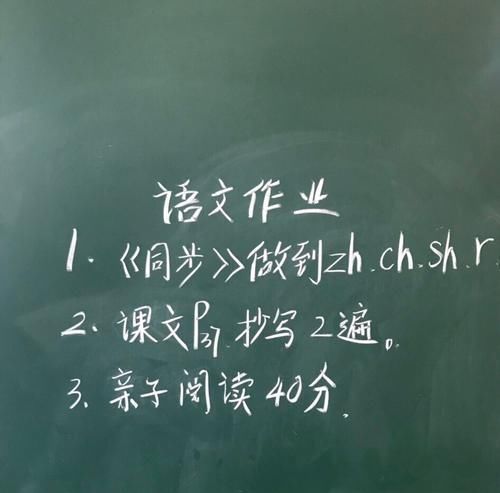 语文作业
1.《同步》做到zh.ch.sh.r
2.课文P37.抄写2遍。
3.亲子阅读40分.